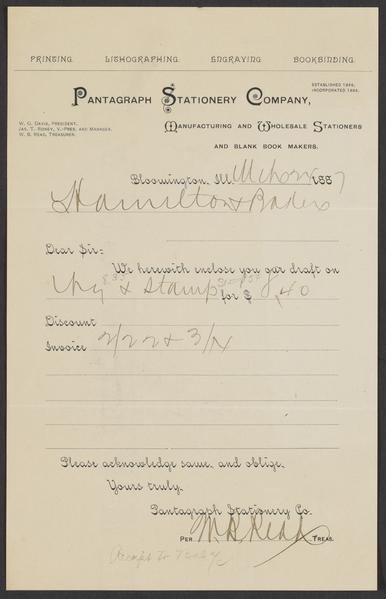 PRINTING. LITHOGRAPHING. ENGRAVING. BOOKBINDING.
ESTABLISHED 1846,
INCORPORATED 1884.
PANTAGRAPH STATIONERY COMPANY,
W. O. DAVIS, PRESIDENT,
JAS. T. RONEY, V.-PRES. AND MANAGER.
W. R. READ, TREASURER.
MANUFACTURING AND WHOLESALE STATIONERS
AND BLANK BOOK MAKERS.
Bloomington, Ill. 1887
Hamilton &
Dear Sir:
We herewith enclose you our draft on
& Stamps for $ 8.40
Discount
Invoice 2/22 & 3/4
Please acknowledge same, and oblige,
Yours truly,
Pantagraph Stationery Co.
PER W. R. Read TREAS.